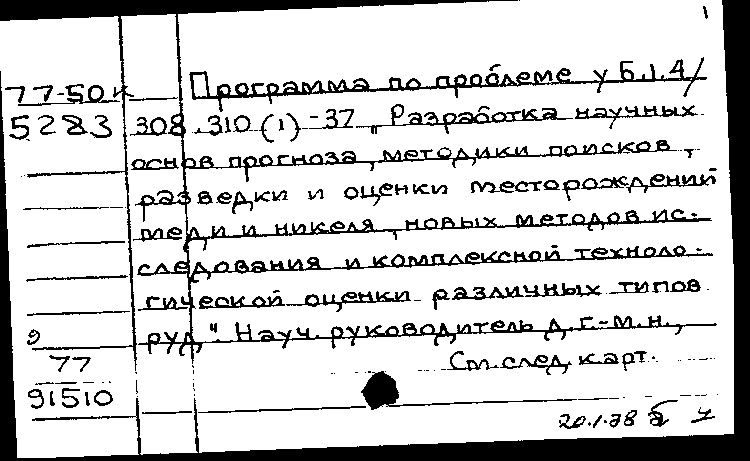 1
77-50к Программа по проблеме у Б.1.4/
5283 308.310(1)-37 „Разработка научных
основ прогноза, методики поисков,
разведки и оценки месторождений
меди и никеля, новых методов ис-
следования и комплексной техноло-
гической оценки различных типов
руд". Науч. руководитель д.г.-м.н.,
77 См. след. карт.
91510
20.1.78